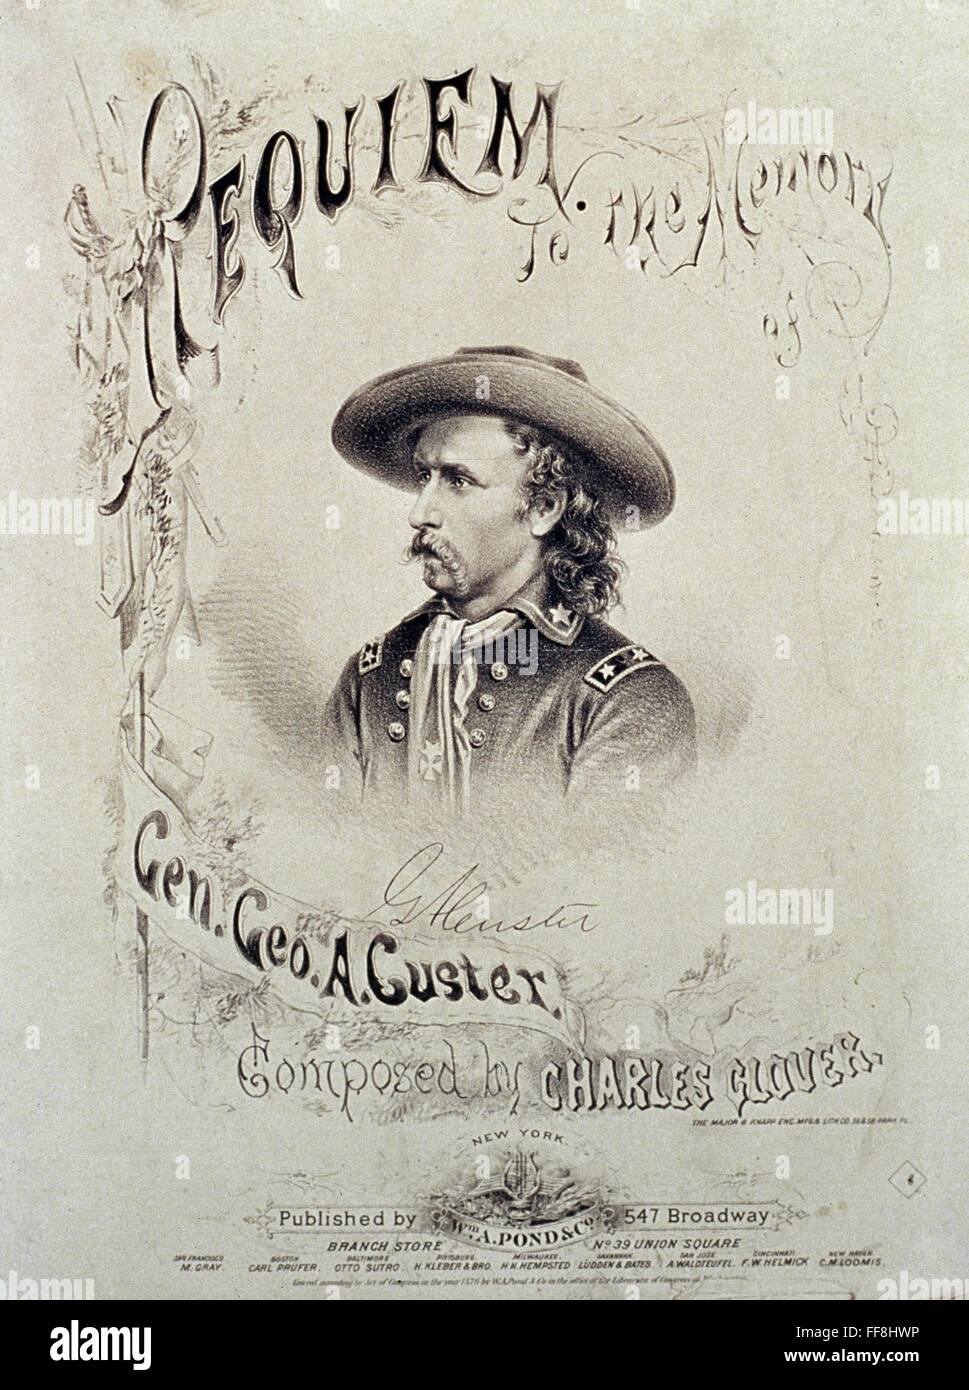 REQUIEM
To the Memory
of
Gen. Geo. A. Custer.
GACuster
Composed by CHARLES GLOVER.
THE MAJOR & KNAPP ENG. MFG. & LITH. CO. 56 & 58 PARK PL.
NEW YORK.
Wm. A. POND & Co.
Published by 547 Broadway
BRANCH STORE No 39 UNION SQUARE
SAN FRANCISCO. BOSTON. BALTIMORE. PITTSBURG. MILWAUKEE. SAVANNAH. SAN JOSE. CINCINNATI. NEW HAVEN.
M. GRAY. CARL PRÜFER. OTTO SUTRO. H. KLEBER & BRO. H. N. HEMPSTED LUDDEN & BATES. A. WALDTEUFEL. F. W. HELMICK C. M. LOOMIS.
Entered according to Act of Congress in the year 1876 by W. A. Pond & Co. in the office of the Librarian of Congress at
alamy
alamy stock photo
FF8HWP
www.alamy.com